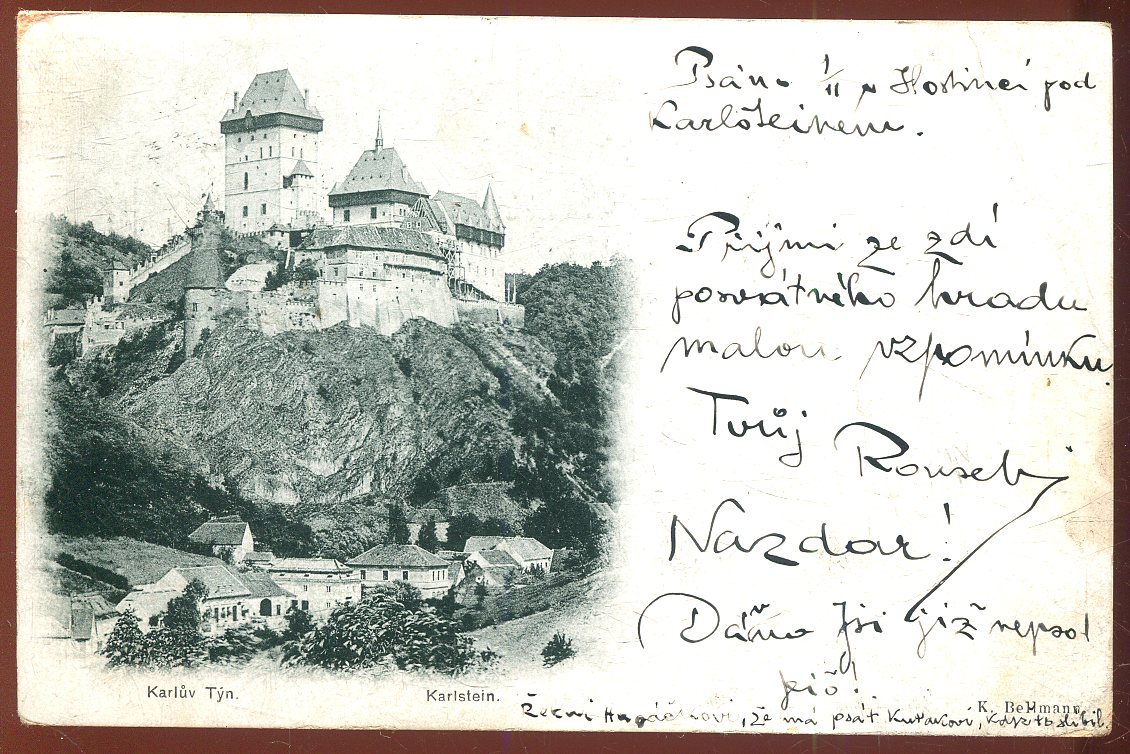 Psáno 1/II v Hostinci pod
Karlšteinem.
Přijmi ze zdí
posvátného hradu
malou vzpomínku.
Tvůj
Rousek
Nazdar!
Dáňo Jsi již nepsal
piš!
Řekni, že má psát, když to slíbil.
Karlův Týn.
Karlstein.
K. Bellmann